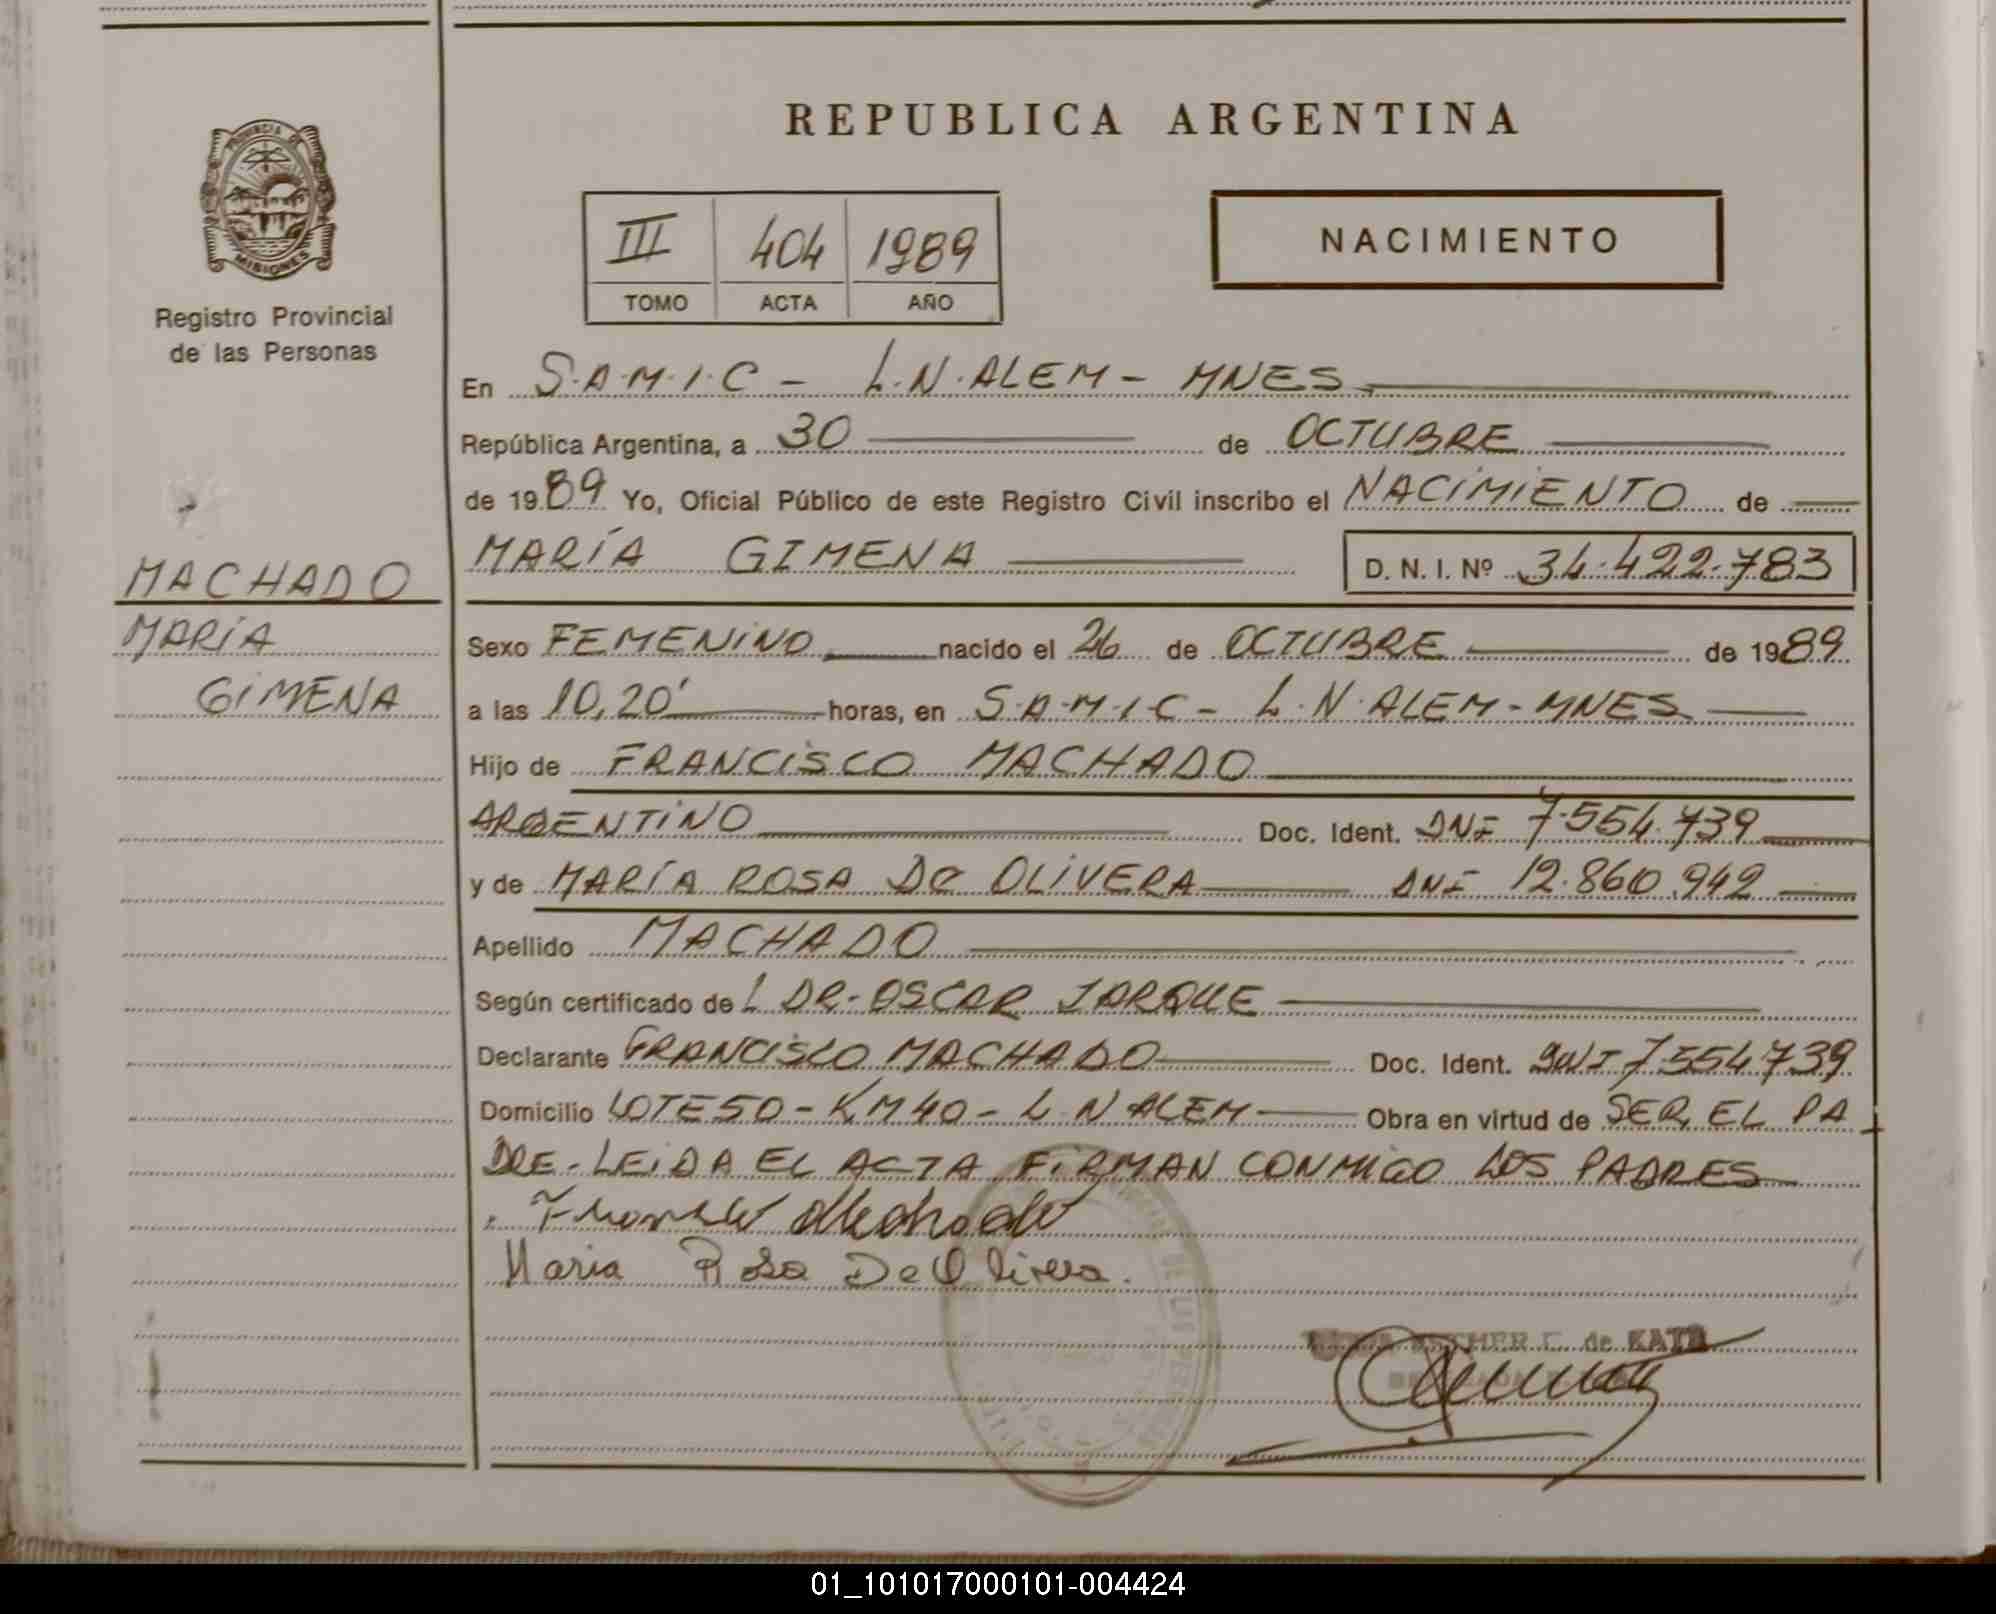 REPUBLICA ARGENTINA
PROVINCIA DE
MISIONES
Registro Provincial
de las Personas
III 404 1989
TOMO ACTA AÑO
NACIMIENTO
En S.A.M.I.C - L.N.ALEM - MNES
República Argentina, a 30 de OCTUBRE
de 1989 Yo, Oficial Público de este Registro Civil inscribo el NACIMIENTO de
MARÍA GIMENA D. N. I. Nº 34.422.783
MACHADO
MARÍA
GIMENA
Sexo FEMENINO nacido el 26 de OCTUBRE de 1989
a las 10,20' horas, en S.A.M.I.C - L.N.ALEM - MNES
Hijo de FRANCISCO MACHADO
ARGENTINO Doc. Ident. DNI 7.554.739
y de MARÍA ROSA DE OLIVERA DNI 12.860.942
Apellido MACHADO
Según certificado de L DR. OSCAR JARQUE
Declarante FRANCISCO MACHADO Doc. Ident. DNI 7.554.739
Domicilio LOTE 50 - KM 40 - L.N ALEM Obra en virtud de SER EL PA
DRE - LEIDA EL ACTA FIRMAN CONMIGO LOS PADRES
Machado
Maria Rosa De Olivera.
ESTHER C. de KATZ
01_101017000101-004424